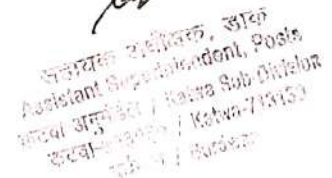 सहायक अधीक्षक, डाक
Assistant Superintendent, Posts
कटवा अनुमंडल / Katwa Sub Division
कटवा- / Katwa-713130
/ Burdwan